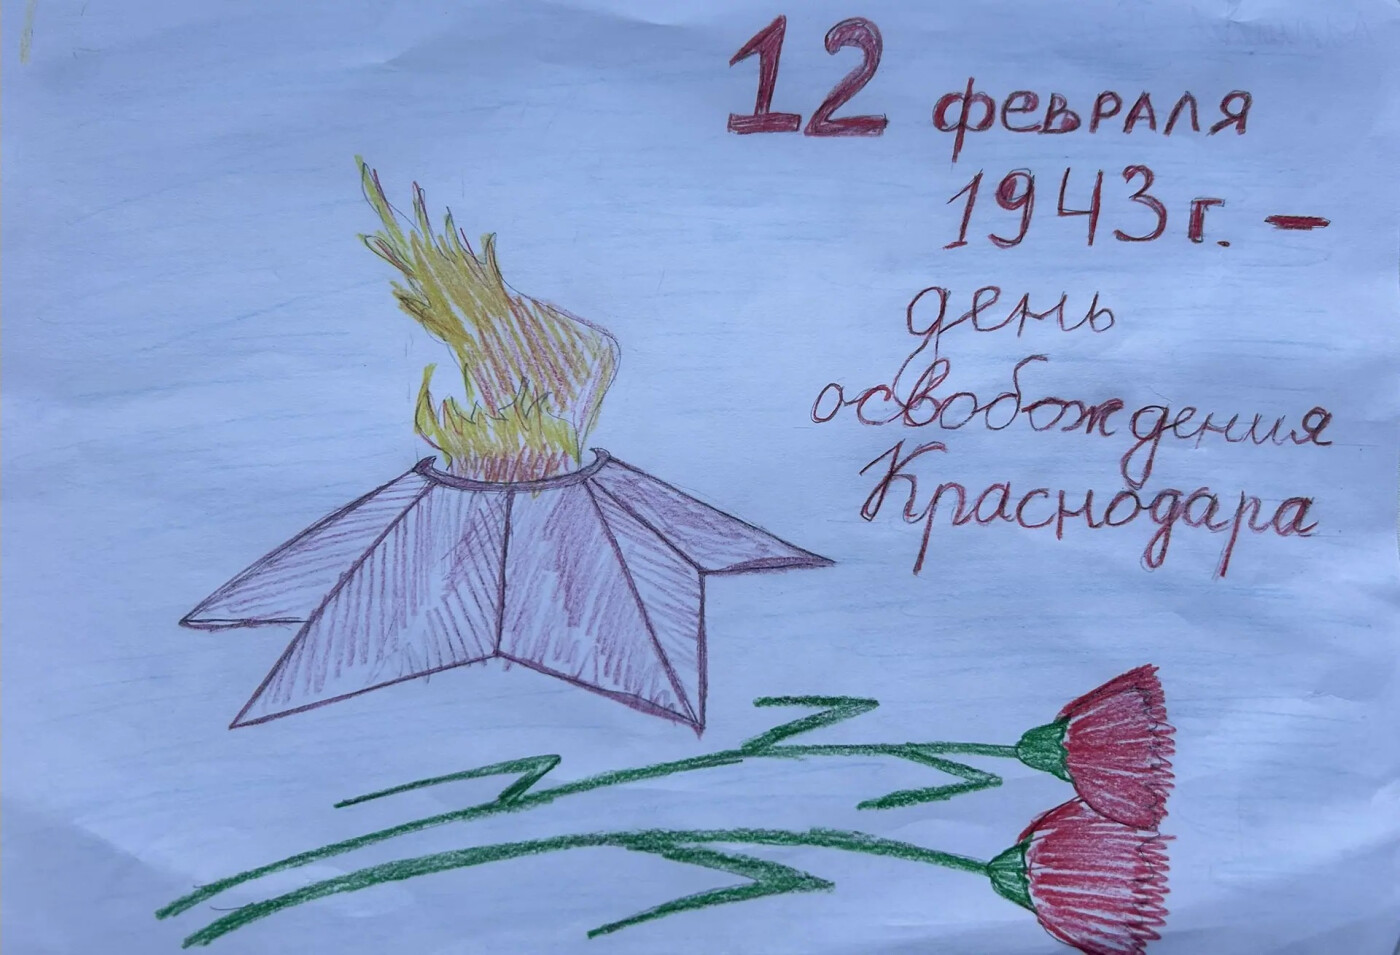 12 февраля
1943 г. –
день
освобождения
Краснодара